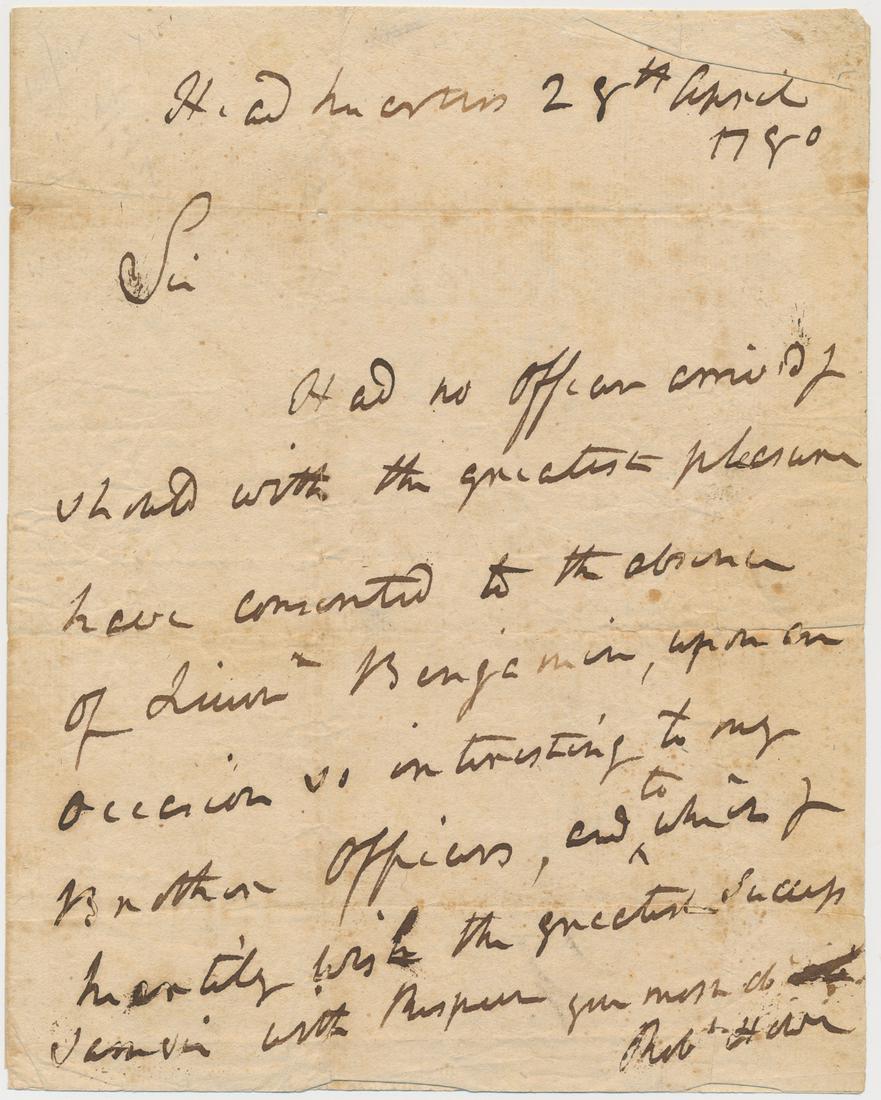 Head Quarters 28th April
1780
Sir
Had no Officer arriv'd I
should with the greatest pleasure
have consented to the absence
of Lieut Benjamin, upon an
Occasion so interesting to my
Brother Officers, and to which I
heartily wish the greatest Success
I am Sir with Respect your most ob
Robt Howe